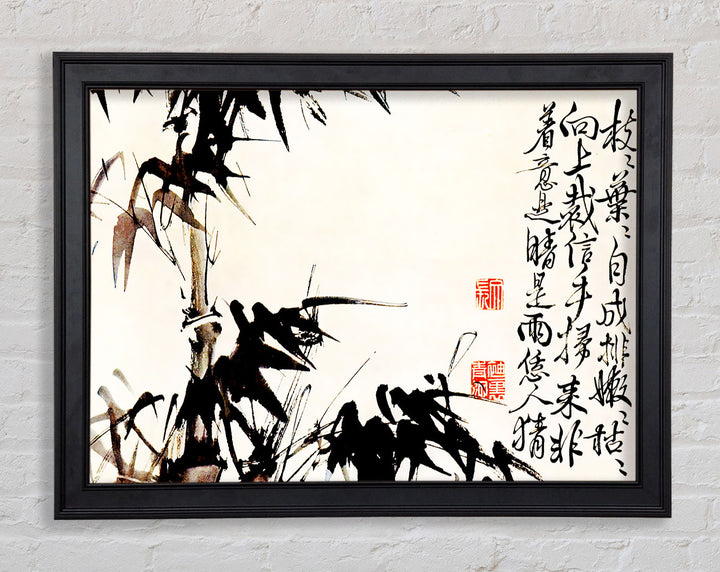 枝〻葉〻自成排嫩〻枯〻
向上栽信手掃来非
着意是晴是雨恁人猜
文長